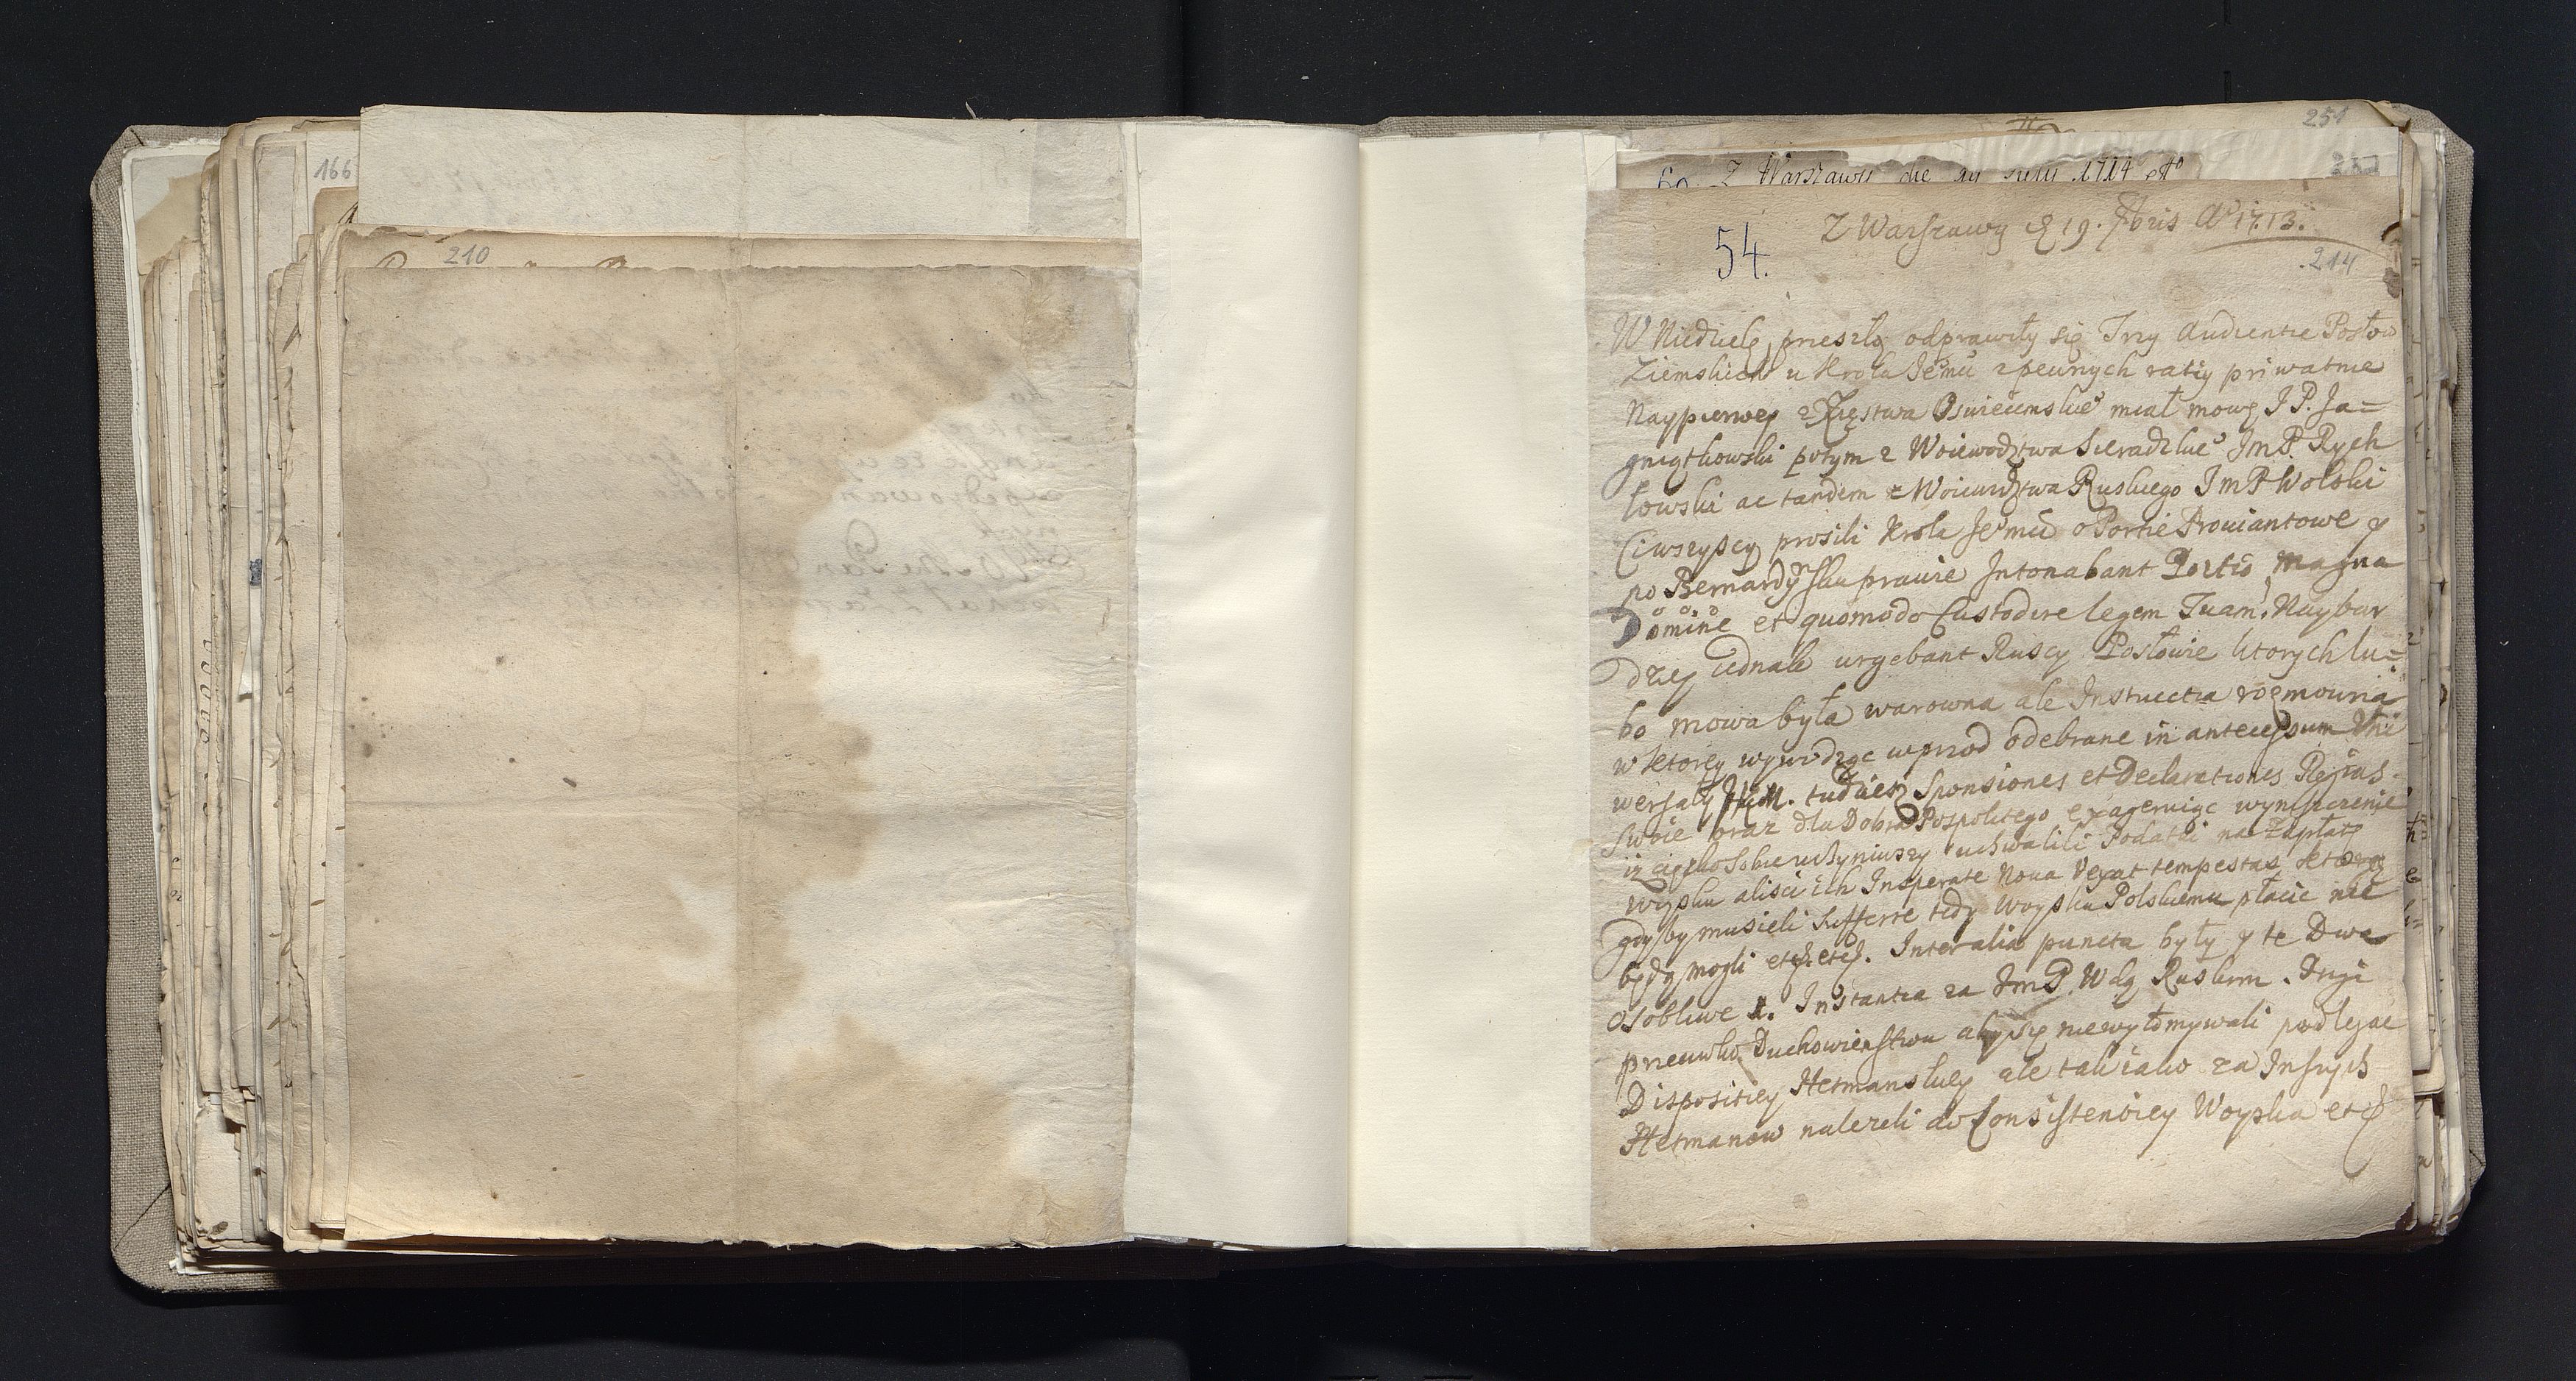 166
210
251
Z Warszawy die 1714
54.
Z Warszawy d 19. 7bris Aº 1713.
214
W Niedzielę przeszłą odprawiły się Trzy Audientie Posłow
Ziemskich u Krola Jemu z pewnych ratiy priwatnie
Naypierwey z Xięstwa Oswiecimskie miał mowę J P. Ja=
gniątkowski potym z Woiewodztwa Sieradzkie Jm P. Rych
łowski ac tandem z Woiewodztwa Ruskiego Jm P Wolski
Ci wszyscy prosili Krola Jemu o Portie Prowiantowe y
po Bernardyńsku prawie Intonabant Portio magna
Domine et quomodo Custodire legem Tuam. Naybar
dziey iednak urgebant Ruscy Posłowie ktorych lu=
bo mowa była warowna ale Instructia rozmowna
w ktorey wywodząc wprzod odebrane in antecessum Uni
wersały tudziesz Sponsiones et Declarationes Regias
swoie oraz dla Dobra Pospolitego exageruiąc wyniszczenie
iz cięzko sobie uczyniwszy uchwalili Podatki na Zapłatę
woysku alisci ich Insperate Noua Vexat tempestas ktorą
gdyby musieli sufferre tedy Woysku Polskiemu płacic nie
będą mogli etc. etc. Inter alia puncta były y te Dwa
osobliwe 1. Instantia za Jm P. Wdą Ruskim. Drugi
przeciwko Duchowienstwu aby się niewyłomywali podlegac
Dispositiey Hetmanskiey ale tak iako za Inszych
Hetmanow nalezeli do Consistentiey Woyska etc